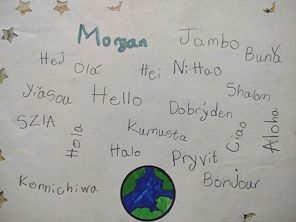 Morgan
Jambo
Hej
Olá
Hei
Ni Hao
Buna
Yiasou
Hello
Shalom
SZIA
Dobrýden
Hola
Kumusta
Ciao
Aloha
Halo
Pryvit
Konnichiwa
Bonjour